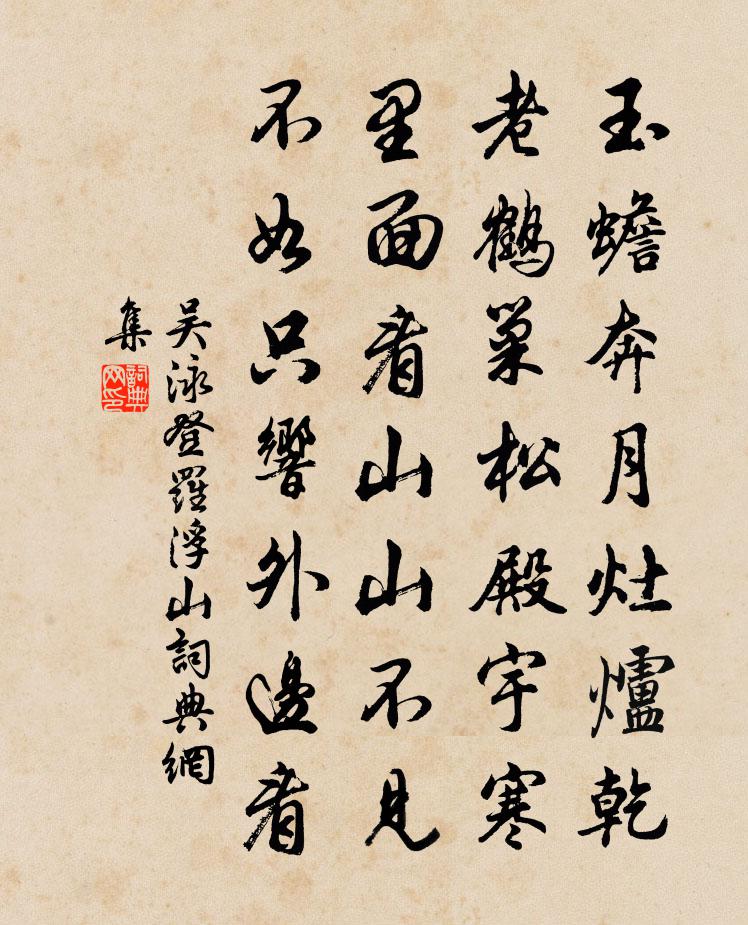 玉蟾奔月灶爐乾
老鶴巢松殿宇寒
里面看山山不見
不如只響外邊看
吳泳登羅浮山詞典網
集
詞典網印